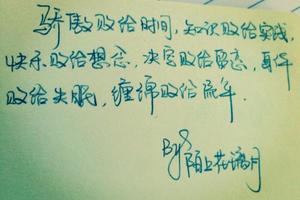 骄傲败给时间，知识败给实践，
快乐败给想念，决定败给留恋，身体
败给失眠，缠绵败给流年．
By 陌上花满月